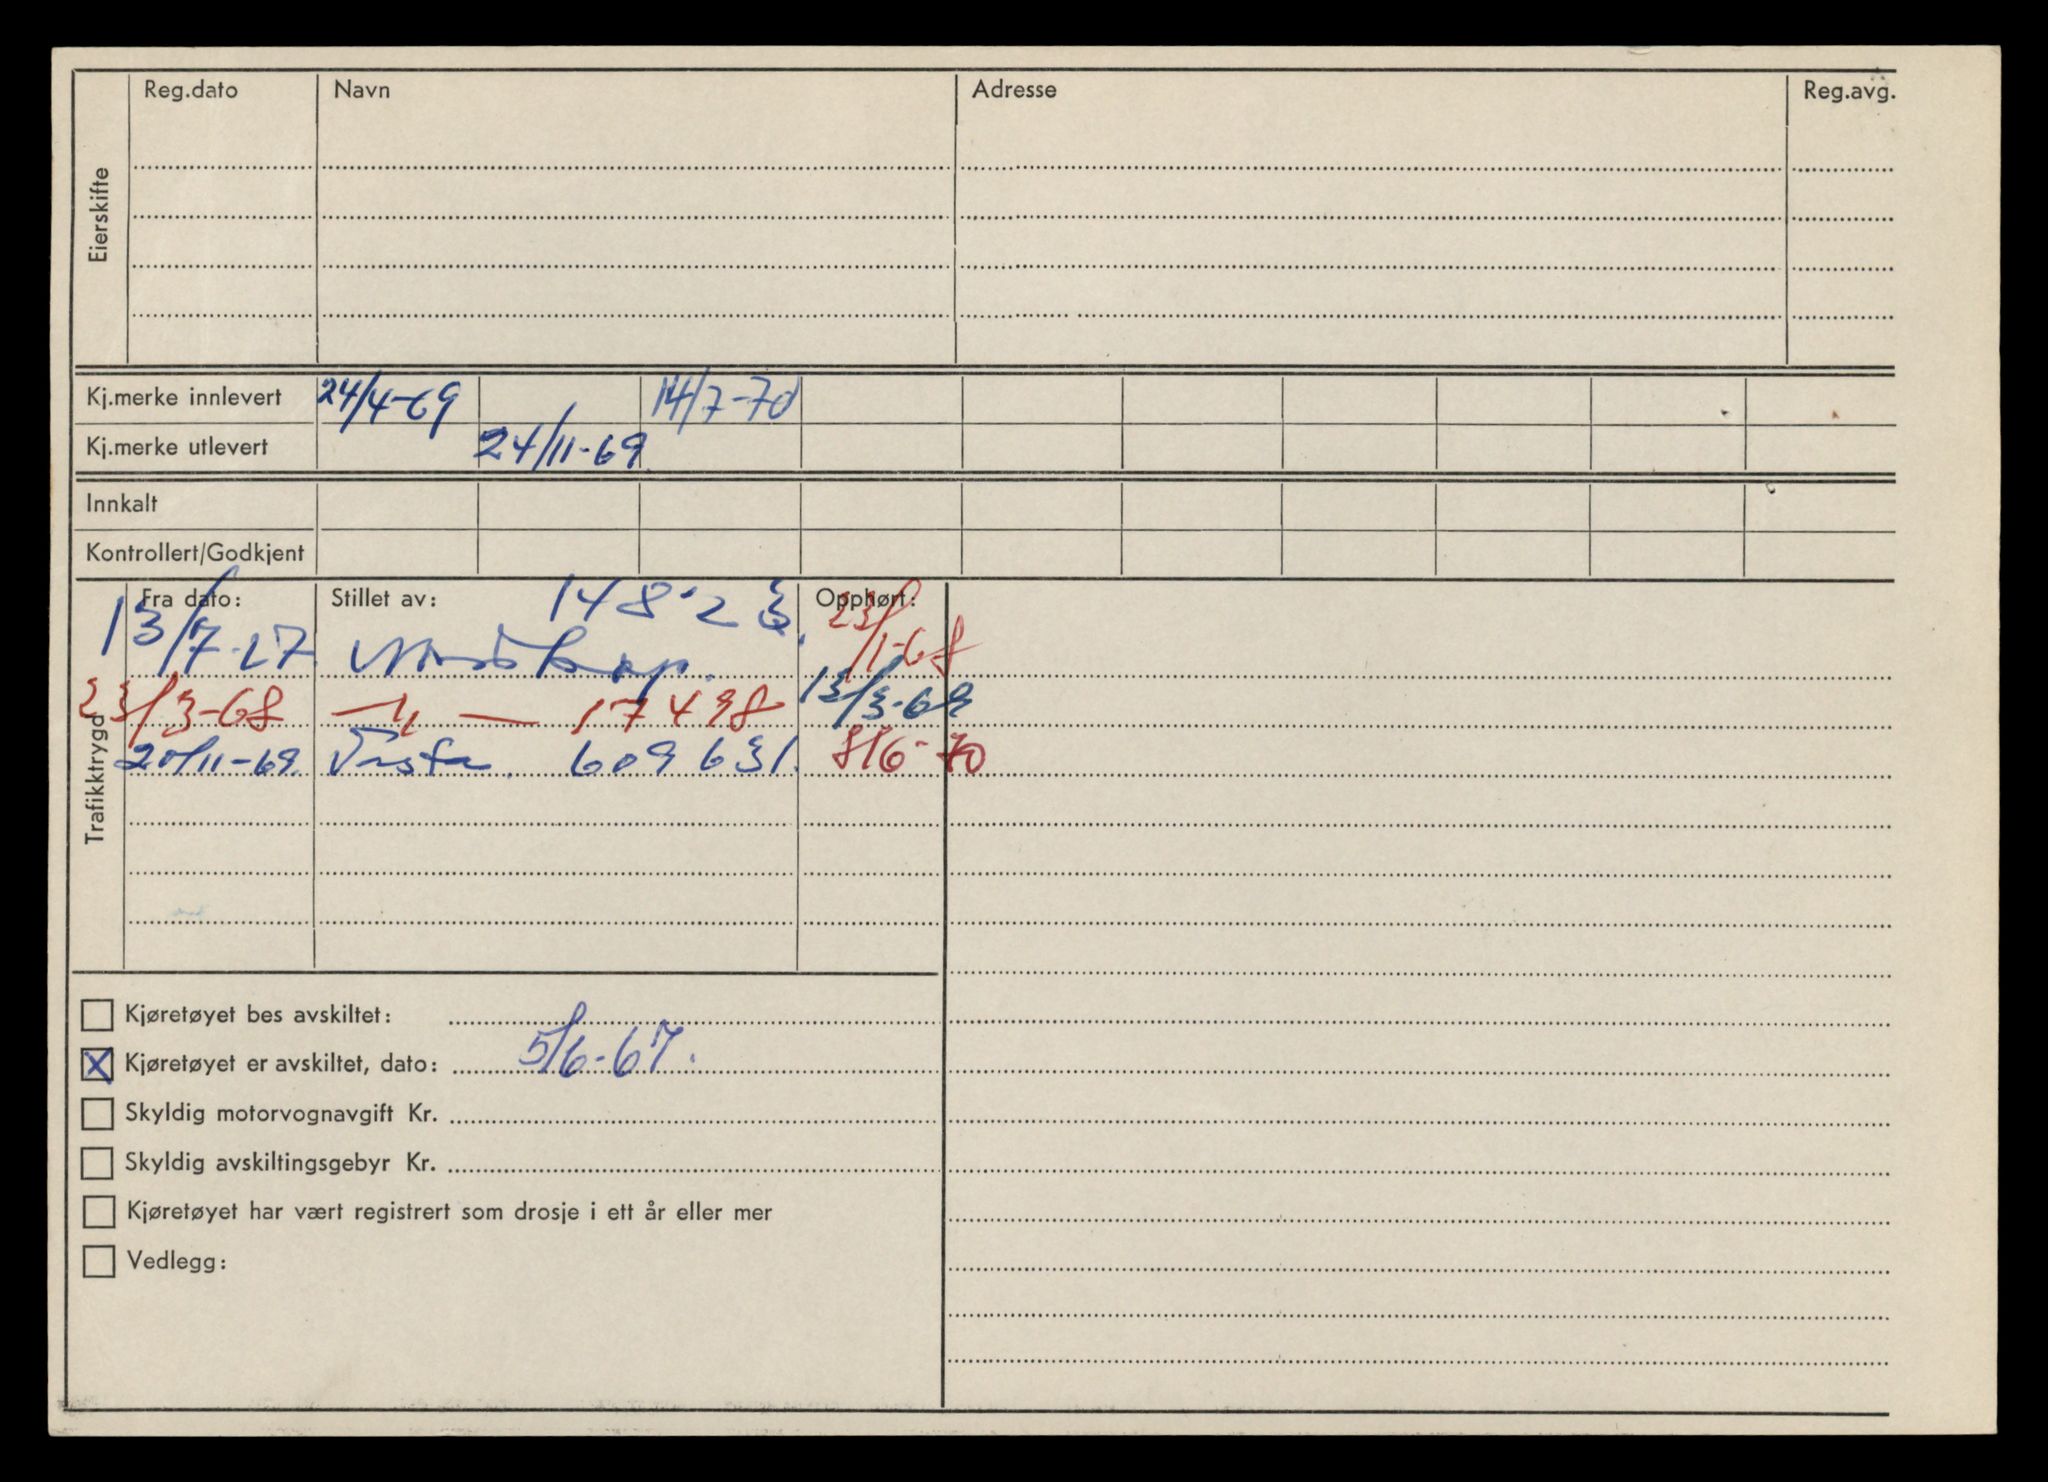 Eierskifte
Reg.dato Navn Adresse Reg.avg.
Kj.merke innlevert 24/4-69 14/7-70
Kj.merke utlevert 24/11-69
Innkalt
Kontrollert/Godkjent
Trafikktrygd
Fra dato: Stillet av: Opphørt:
14823
13/7-67 23/1-68
23/3-68 —„— 17498 13/3-69
20/11-69 609631. 8/6-70
Kjøretøyet bes avskiltet:
X Kjøretøyet er avskiltet, dato: 5/6-67.
Skyldig motorvognavgift Kr.
Skyldig avskiltingsgebyr Kr.
Kjøretøyet har vært registrert som drosje i ett år eller mer
Vedlegg: